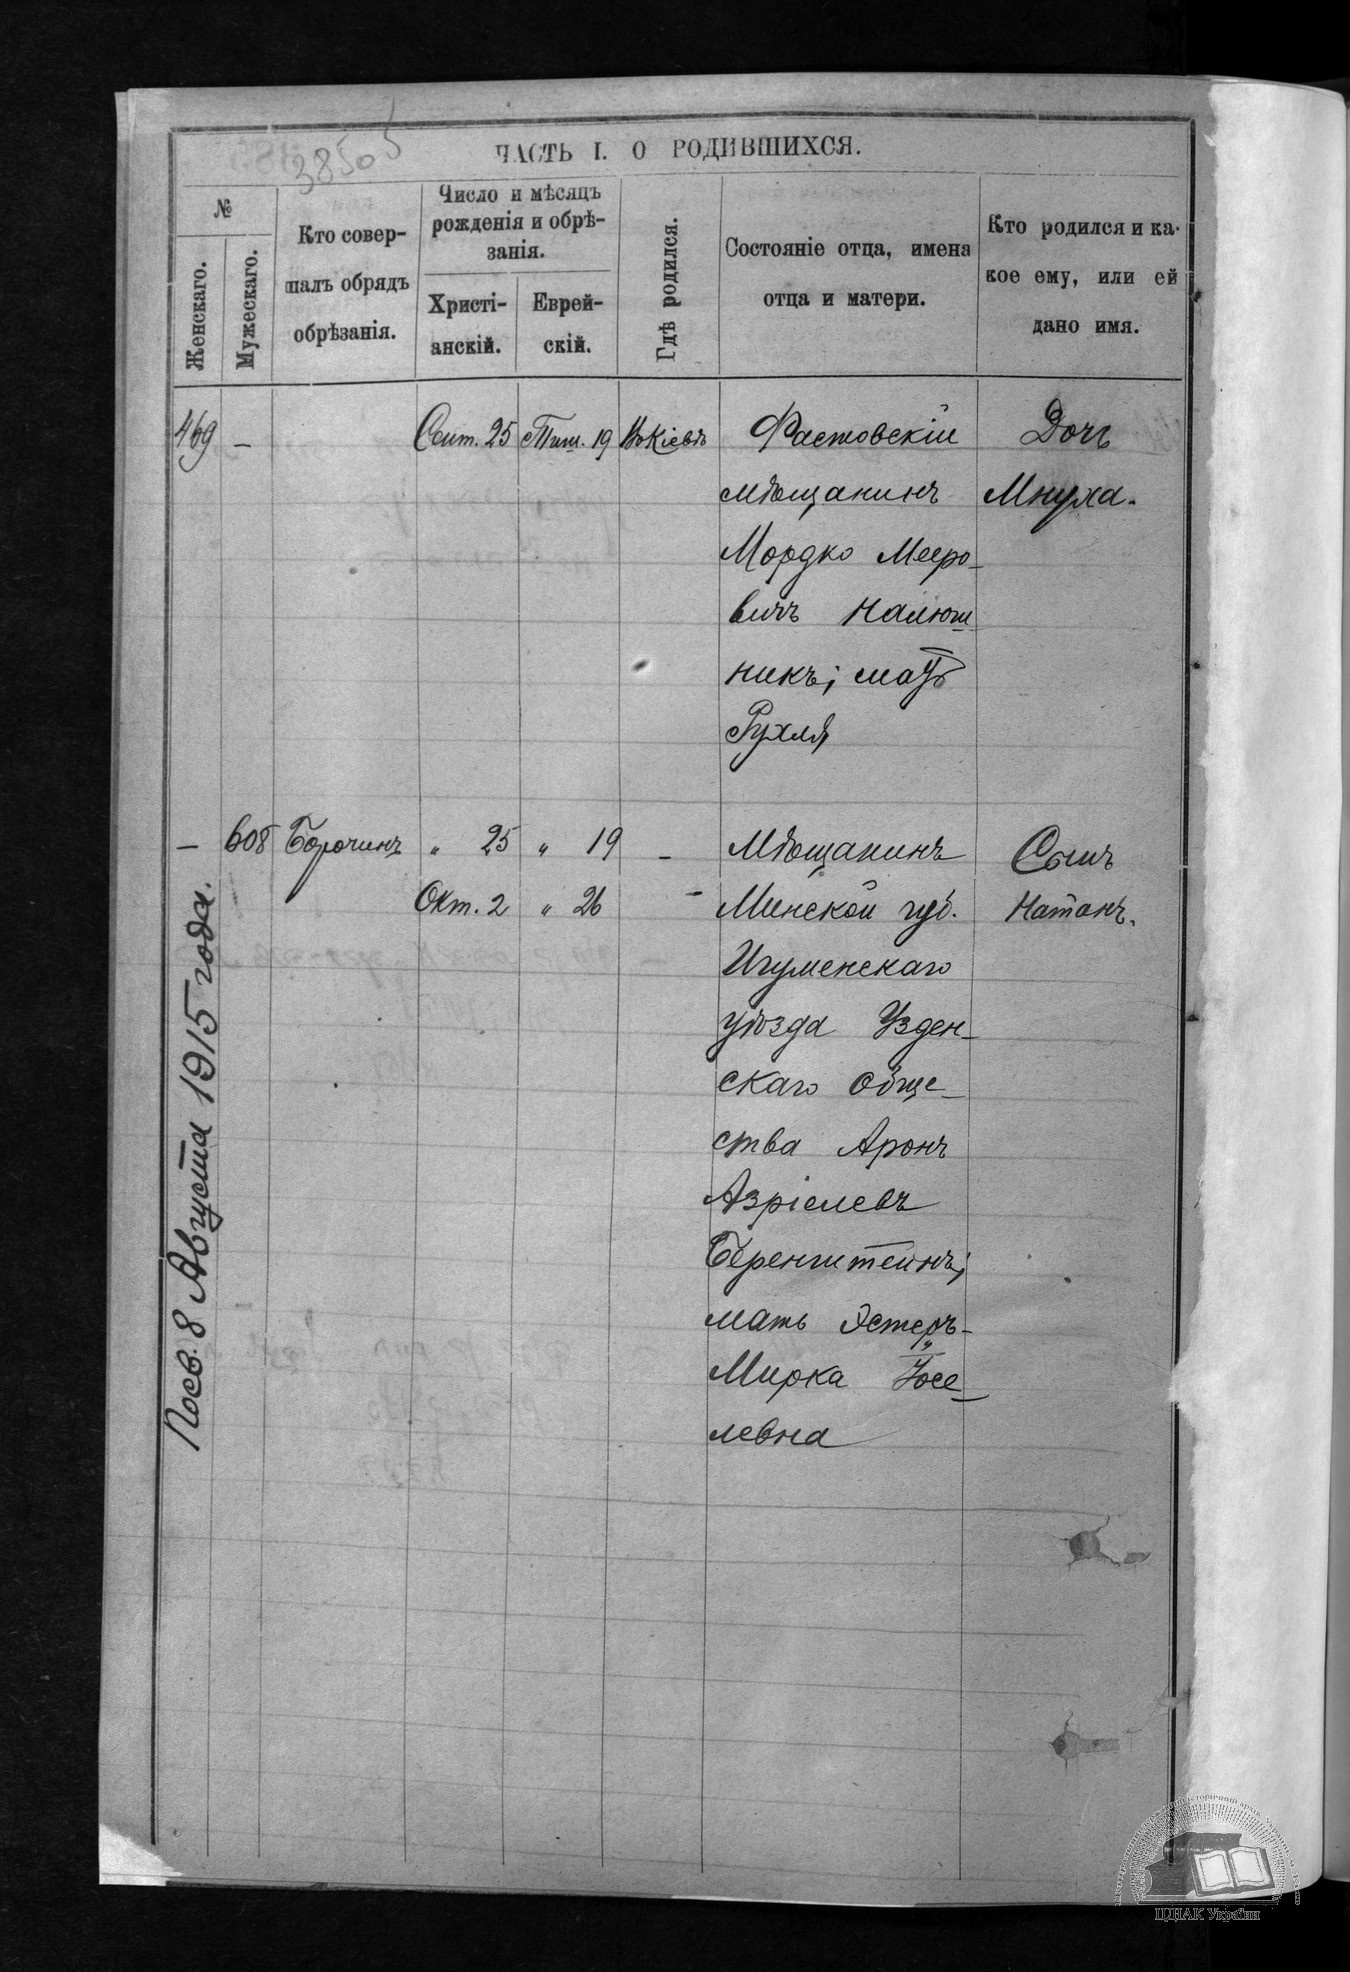 38505
ЧАСТЬ I. О РОДИВШИХСЯ.
№
Женскаго.
Мужескаго.
Кто совер-
шалъ обрядъ
обрѣзанія.
Число и мѣсяцъ
рожденія и обрѣ-
занія.
Христі-
анскій.
Еврей-
скій.
Гдѣ родился.
Состояніе отца, имена
отца и матери.
Кто родился и ка-
кое ему, или ей
дано имя.
469 — Сент. 25 Тиш. 19 Въ Кіевѣ Фастовскій Дочь
мѣщанинъ Мнуха.
Мордко Мееро-
вичъ Налюш-
никъ; мать
Рухля
— 608 Борочинъ „ 25 „ 19 — Мѣщанинъ Сынъ
Окт. 2 „ 26 – Минской губ. Натанъ.
Игуменскаго
уѣзда Узден-
скаго обще-
ства Аронъ
Азріелевъ
Беренштейнъ;
мать Эстеръ-
Мирка Іосе-
левна
Посв. 8 Августа 1915 года.
ЦДІАК України